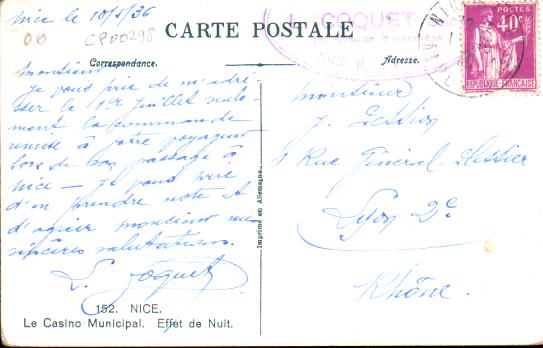 Nice le 10/5/36
CP00298
CARTE POSTALE
L. COQUET
NICE
NICE
POSTES
40c
REPUBLIQUE FRANÇAISE
Correspondance.
Adresse.
Monsieur
Je vous prie de m'adres
ser le 1er Juillet seule
ment la commande
remise à votre voyageur
lors de son passage à
Nice — Je vous prie
d'en prendre note et
d'agréer monsieur mes
sincères salutations.
L. Coquet
Imprimé en Allemagne.
Monsieur
J.
1 Rue Général
Lyon 2e
Rhône.
152. NICE.
Le Casino Municipal. Effet de Nuit.